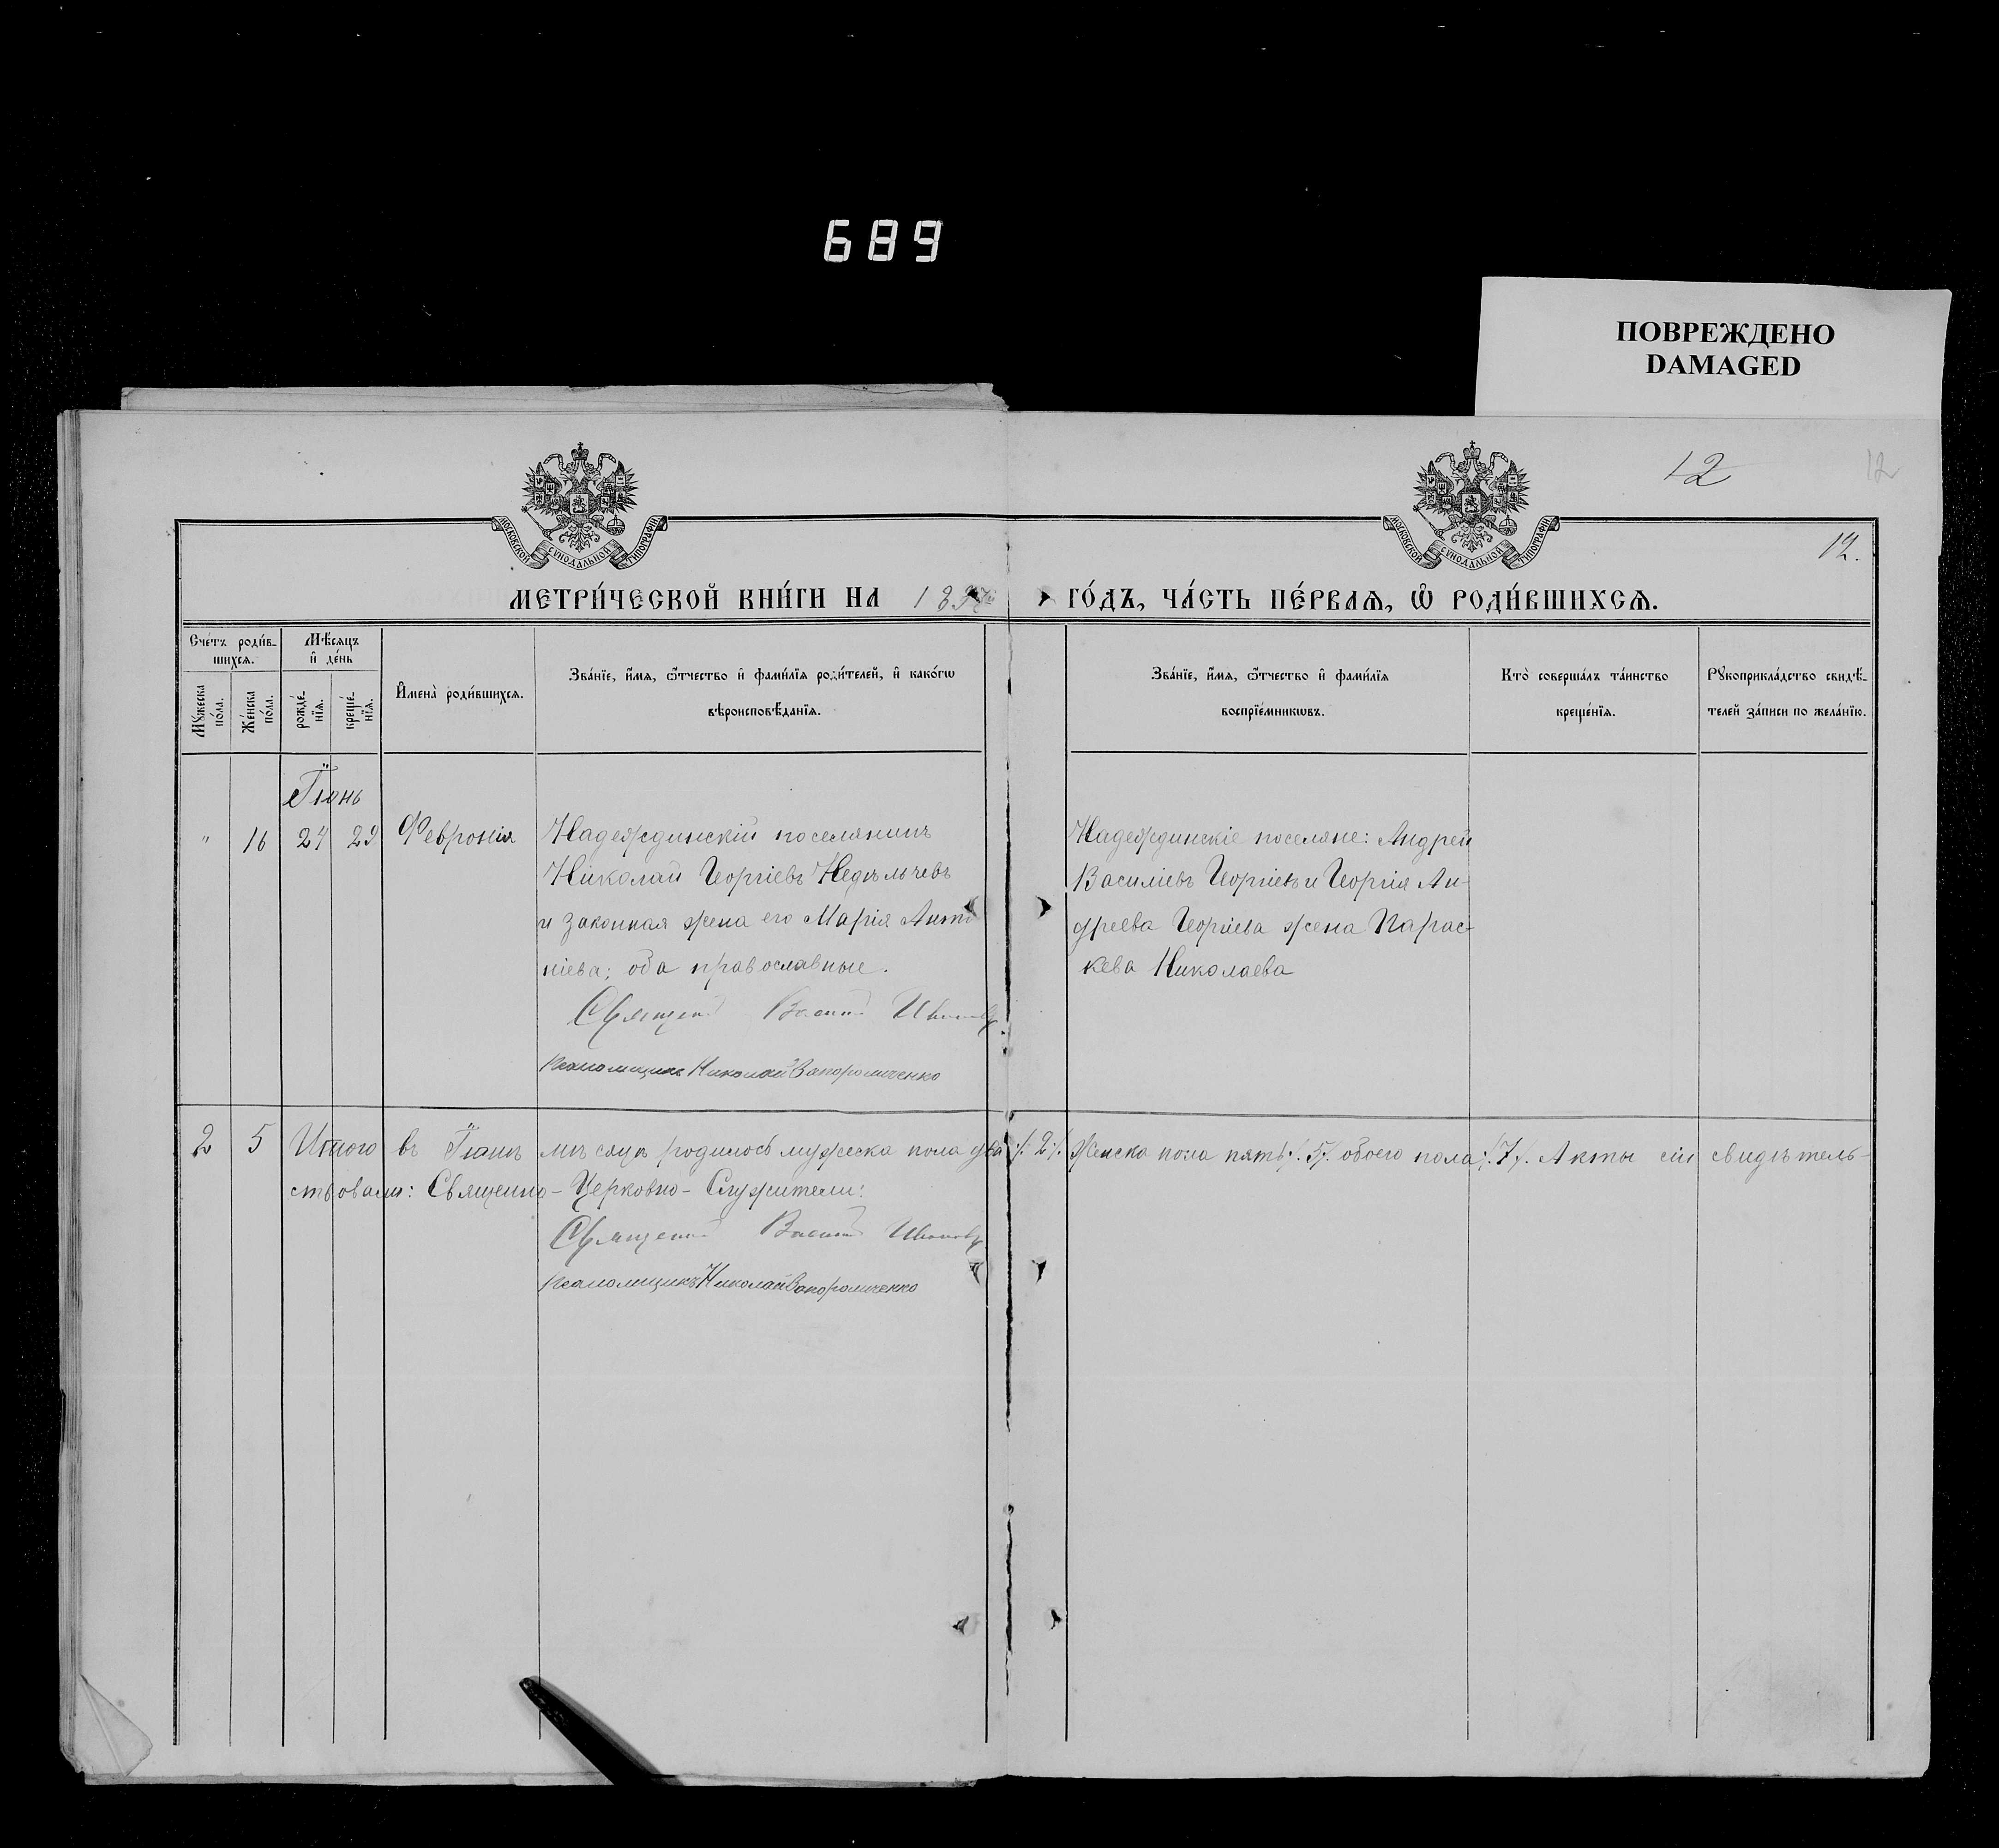 689
ПОВРЕЖДЕНО
DAMAGED
12
12
12.
МОСКОВСКОЙ СѴНОДАЛЬНОЙ ТИПОГРАФІИ
МОСКОВСКОЙ СѴНОДАЛЬНОЙ ТИПОГРАФІИ
МЕТРИ́ЧЕСКОЙ КНИ́ГИ НА ГО́ДЪ, ЧА́СТЬ ПЕ́РВАѦ, Ѽ РОДИ́ВШИХСѦ.
Сче́тъ роди́в-
шихсѧ.
Мꙋжеска
по́ла.
Же́нска
по́ла.
Мѣ́сяцъ
и҆ де́нь
рожде́-
нїѧ.
креще́-
нїѧ.
И҆мена̀ роди́вшихсѧ.
Зва́нїе, и҆́мѧ, ѻ҆́тчество и҆ фами́лїѧ роди́телей, и҆ како́гѡ
вѣроисповѣ́данїѧ.
Зва́нїе, и҆́мѧ, ѻ҆́тчество и҆ фами́лїѧ
воспрїе́мникѡвъ.
Кто̀ соверша́лъ та́инство
креще́нїѧ.
Рꙋкоприкла́дство свидѣ́-
телей за́писи по жела́нїю.
Іюнь
" 16 24 29 Февронія
Надеждинскій поселянинъ
Николай Георгіевъ Недѣльчевъ
и законная жена его Марія Анто
ніева; оба православные.
Священ Васил Ивановъ
Псаломщикъ Николай Запорожченко
Надеждинскіе поселяне: Андрей
Василіевъ Георгіевъ и Георгія Ан-
дреева Георгіева жена Парас-
кева Николаева
2 5 Итого въ Іюнѣ мѣсяцѣ родилось мужеска пола два ./. 2 ./. женска пола пять ./. 5 ./. обоего пола ./. 7 ./. Акты сіи свидѣтель-
ствовали: Священно-Церковно-Служители:
Священ Васил Ивановъ
Псаломщикъ Николай Запорожченко